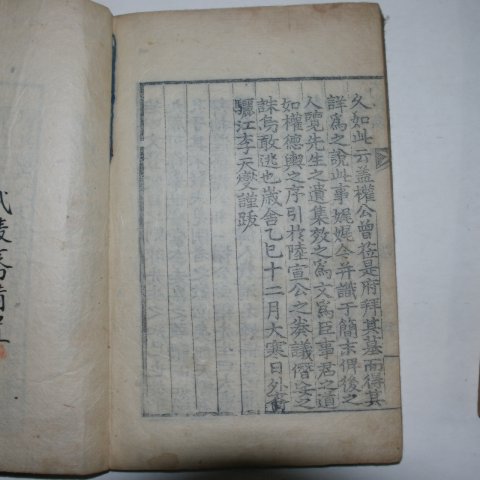 久如此云益權公曾莅是府拜其墓而得其
詳爲之說此事娓娓今并識于簡末俾後之
人覽先生之遺集效之爲文爲臣事君之道
如權德輿之序引於陸宣公之奏議僭妄之
誅烏敢逃也歲舍乙巳十二月大寒日外裔
驪江李天燮謹跋